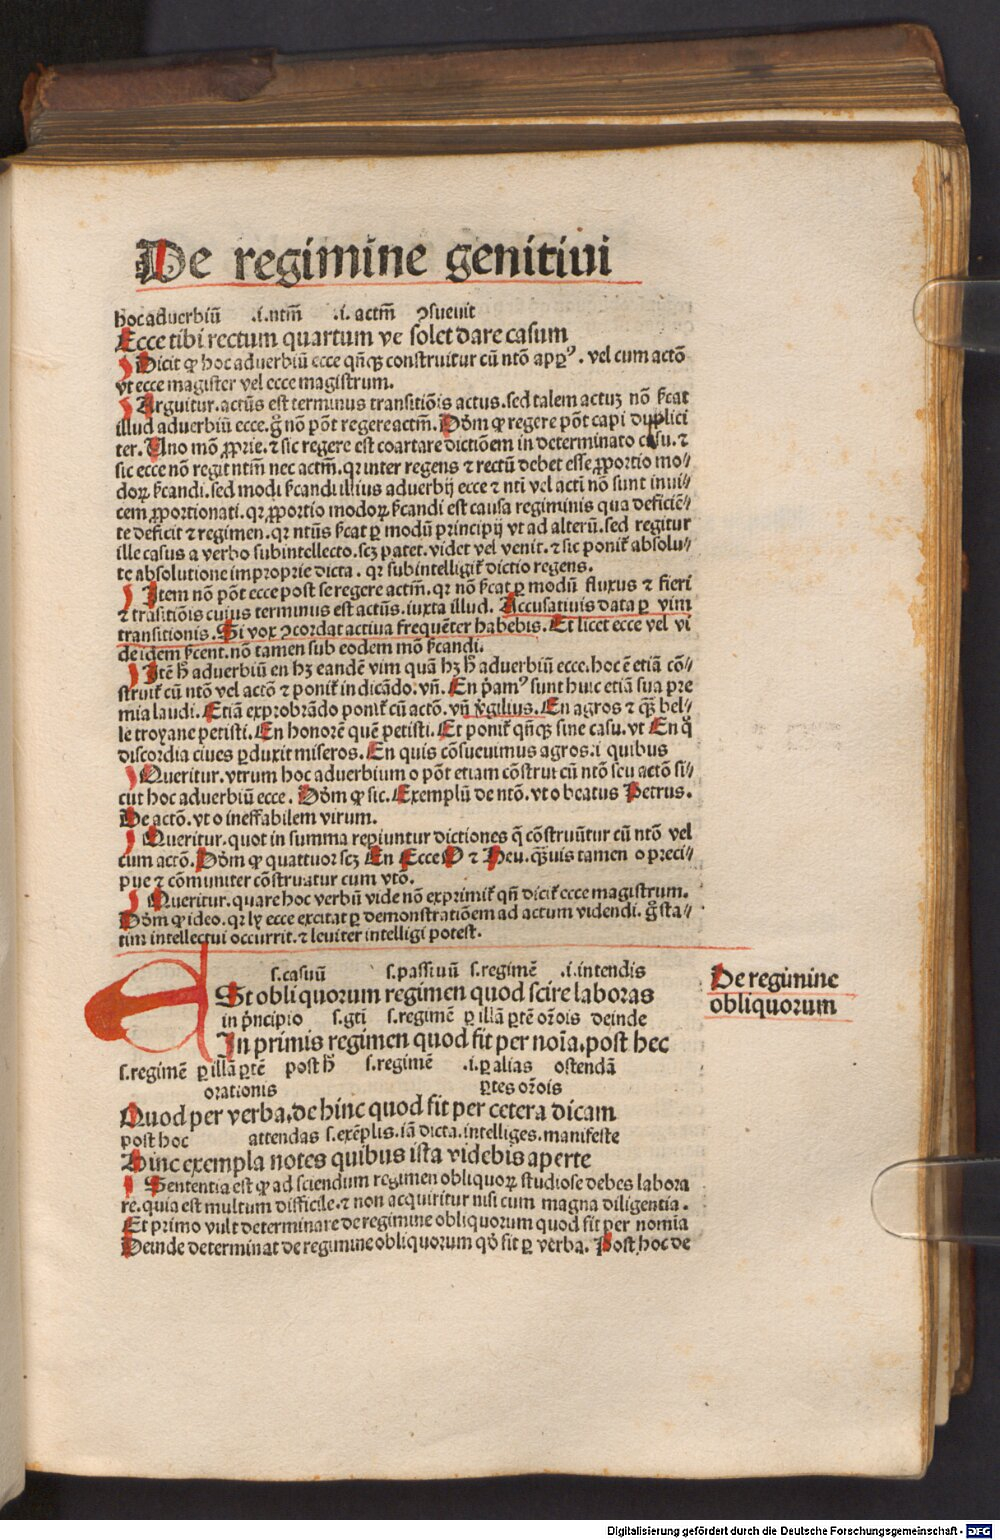 De regimine genitiui
hoc aduerbiū .i.ntm̄ .i. actm̄ ꝯsueuit
Ecce tibi rectum quartum ve solet dare casum
Dicit ꝙ hoc aduerbiū ecce qn̄qꝫ construitur cū ntō . vel cum actō
vt ecce magister vel ecce magistrum.
Arguitur.actūs est terminus transitiōis actus.sed talem actuꝫ nō ẜcat
illud aduerbiū ecce.g̊ nō pōt regere actm̄. Dōm ꝙ regere pōt capi duplici
ter. Uno mō ꝓprie.⁊ sic regere est coartare dictiōem in determinato casu.⁊
sic ecce nō regit ntm̄ nec actm̄.qꝛ inter regens ⁊ rectū debet esse ꝓportio mo⸗
doꝝ ẜcandi.sed modi ẜcandi illius aduerbij ecce ⁊ nti vel acti nō sunt inui⸗
cem ꝓportionati.qꝛ ꝓportio modoꝝ ẜcandi est causa regiminis qua deficiē⸗
te deficit ⁊ regimen.qꝛ ntūs ẜcat ꝑ modū principij vt ad alterū.sed regitur
ille casus a verbo subintellecto.scꝫ patet.videt vel venit.⁊ sic ponit̄ absolu⸗
te absolutione improprie dicta. qꝛ subintelligit̄ dictio regens.
Item nō pōt ecce post se regere actm̄.qꝛ nō ẜcat ꝑ modū fluxus ⁊ fieri
⁊ trāsitiōis cuius terminus est actūs.iuxta illud. Accusatiuis data ꝑ vim
transitionis. Si vox ꝯcordat actiua frequēter habebis. Et licet ecce vel vi
de idem ẜcent.nō tamen sub eodem mō ẜcandi.
Itē h̄ aduerbiū en hꝫ eandē vim quā hꝫ h̄ aduerbiū ecce.hoc ē etiā cō⸗
struit̄ cū ntō vel actō ⁊ ponit̄ in dicādo.vn̄. En p̄amꝰ sunt huic etiā sua pre
mia laudi. Etiā exprobrādo ponit̄ cū actō.vn̄ v̄gilius. En agros ⁊ qꝫ bel⸗
le troyane petisti. En honorē quē petisti. Et ponit̄ qn̄qꝫ sine casu.vt En q̄
discordia ciues ꝑduxit miseros. En quis cōsueuimus agros.i quibus
Queritur.vtrum hoc aduerbium o pōt etiam cōstrui cū ntō seu actō si⸗
cut hoc aduerbiū ecce. Dōm ꝙ sic. Exemplū de ntō.vt o beatus Petrus.
De actō.vt o ineffabilem virum.
Queritur.quot in summa reꝑiuntur dictiones q̄ cōstruūtur cū ntō vel
cum actō. Dōm ꝙ quattuor scꝫ En Ecce O ⁊ Heu.qꝫuis tamen o preci⸗
pue ⁊ cōmuniter cōstruatur cum vtō.
Queritur.quare hoc verbū vide nō exprimit̄ qn̄ dicit̄ ecce magistrum.
Dōm ꝙ ideo.qꝛ ly ecce excitat ꝑ demonstratiōem ad actum videndi. g̊ sta⸗
tim intellectui occurrit.⁊ leuiter intelligi potest.
s.casuū s.passiuū s.regimē .i.intendis
Est obliquorum regimen quod scire laboras
De regimine
obliquorum
in p̄ncipio s.gti s.regimē ꝑ illā ꝑtē or̄ois deinde
In primis regimen quod fit per noīa.post hec
s.regimē ꝑ illā ꝑtē post h̄ s.regimē .i.ꝑ alias ostendā
orationis ꝑtes or̄ois
Quod per verba.dehinc quod fit per cetera dicam
post hoc attendas s.exēplis.iā dicta.intelliges.manifeste
Hinc exempla notes quibus ista videbis aperte
Sententia est ꝙ ad sciendum regimen obliquoꝝ studiose debes labora
re.quia est multum difficile.⁊ non acquiritur nisi cum magna diligentia.
Et primo vult determinare de regimine obliquorum quod fit per nomia
Deinde determinat de regimine obliquorum qd̓ fit ꝑ verba. Post hoc de
Digitalisierung gefördert durch die Deutsche Forschungsgemeinschaft - DFG